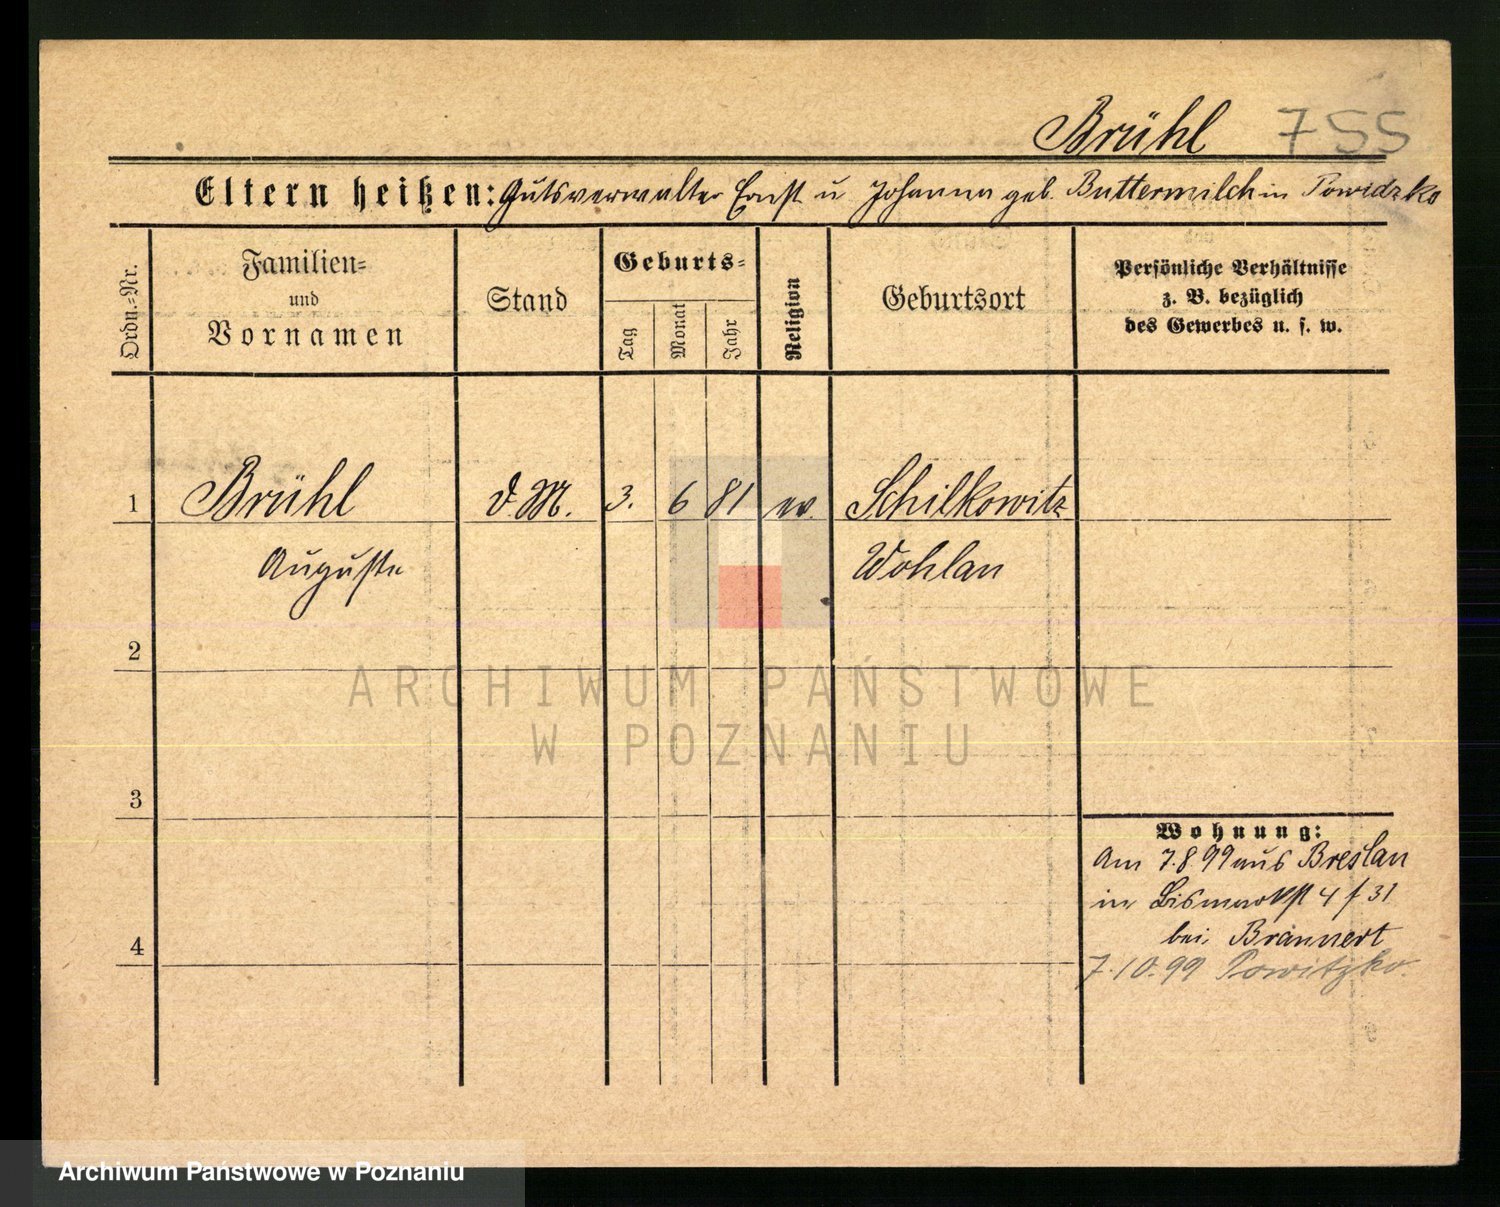 Brühl 755
Eltern heißen: Gutsverwalter Ernst u Johanna geb. Buttermilch in Powidzko
Ordn.-Nr.
Familien-
und
Vornamen
Stand
Geburts-
Tag
Monat
Jahr
Religion
Geburtsort
Persönliche Verhältnisse
z. B. bezüglich
des Gewerbes u. s. w.
1 Brühl d. M. 3. 6 81 ev. Schilkowitz
Auguste Wohlau
2
ARCHIWUM PAŃSTWOWE
W POZNANIU
3
Wohnung:
Am 7.8.99 aus Breslau
in Bismarkst 4 f 31
bei Brannert
4
7.10.99 Powitzko.
Archiwum Państwowe w Poznaniu